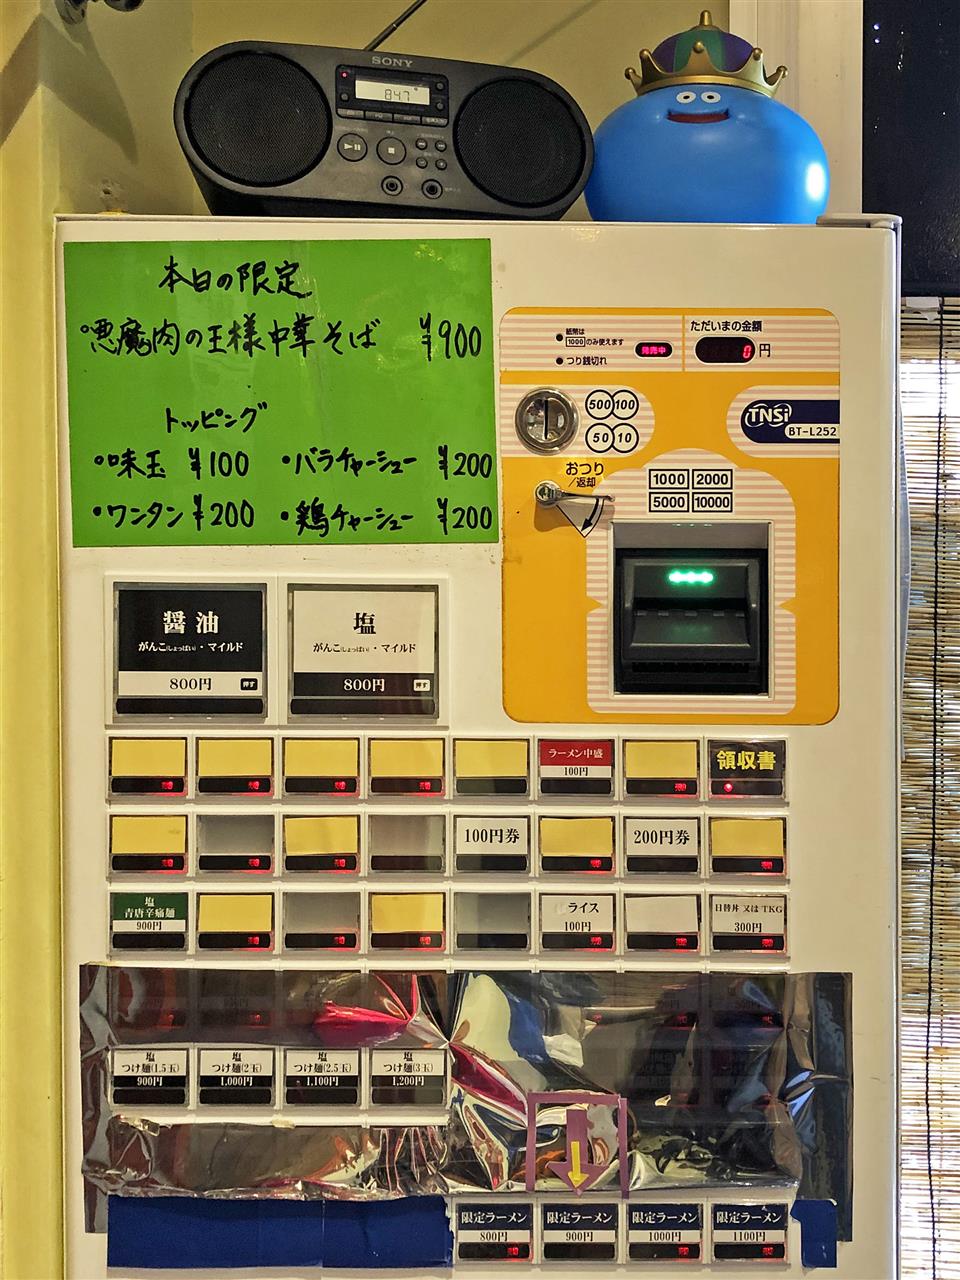 SONY
84.7
本日の限定
・悪魔肉の王様中華そば ¥900
トッピング
・味玉 ¥100 ・バラチャーシュー ¥200
・ワンタン ¥200 ・鶏チャーシュー ¥200
紙幣は
1000のみ使えます
つり銭切れ
発売中
ただいまの金額
0円
500 100
50 10
TNSi
BT-L252
おつり
/返却
1000 2000
5000 10000
醤油
がんこ(しょっぱい)・マイルド
800円 押す
塩
がんこ(しょっぱい)・マイルド
800円 押す
ラーメン中盛
100円
領収書
100円券
200円券
塩
青唐辛痛麺
900円
ライス
100円
日替丼 又は TKG
300円
塩
つけ麺(1.5玉)
900円
塩
つけ麺(2玉)
1,000円
塩
つけ麺(2.5玉)
1,100円
塩
つけ麺(3玉)
1,200円
限定ラーメン
800円
限定ラーメン
900円
限定ラーメン
1000円
限定ラーメン
1100円